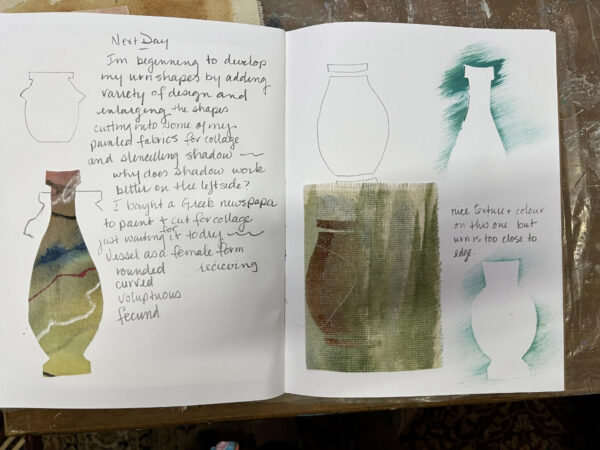 Next Day
I'm beginning to develop
my urn shapes by adding
variety of design and
enlarging the shapes
cutting into some of my
painted fabrics for collage
and stenciling shadow ~~
why does shadow work
better on the left side?
I bought a Greek newspaper
to paint + cut for collage
just waiting for it to dry ~~
Vessel as a female form
rounded recieving
curved
voluptuous
fecund
nice texture + colour
on this one but
urn is too close to
edge.